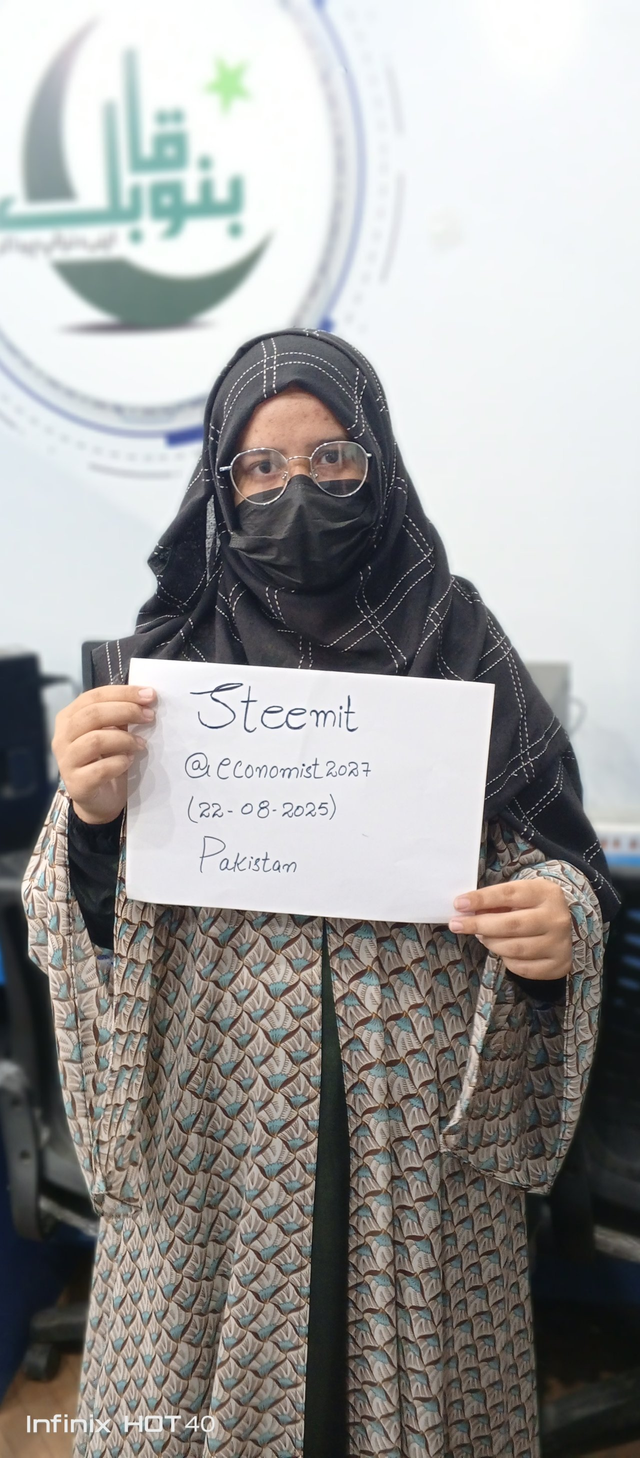 بنو قابل
Steemit
@economist2027
(22-08-2025)
Pakistan
Infinix HOT 40